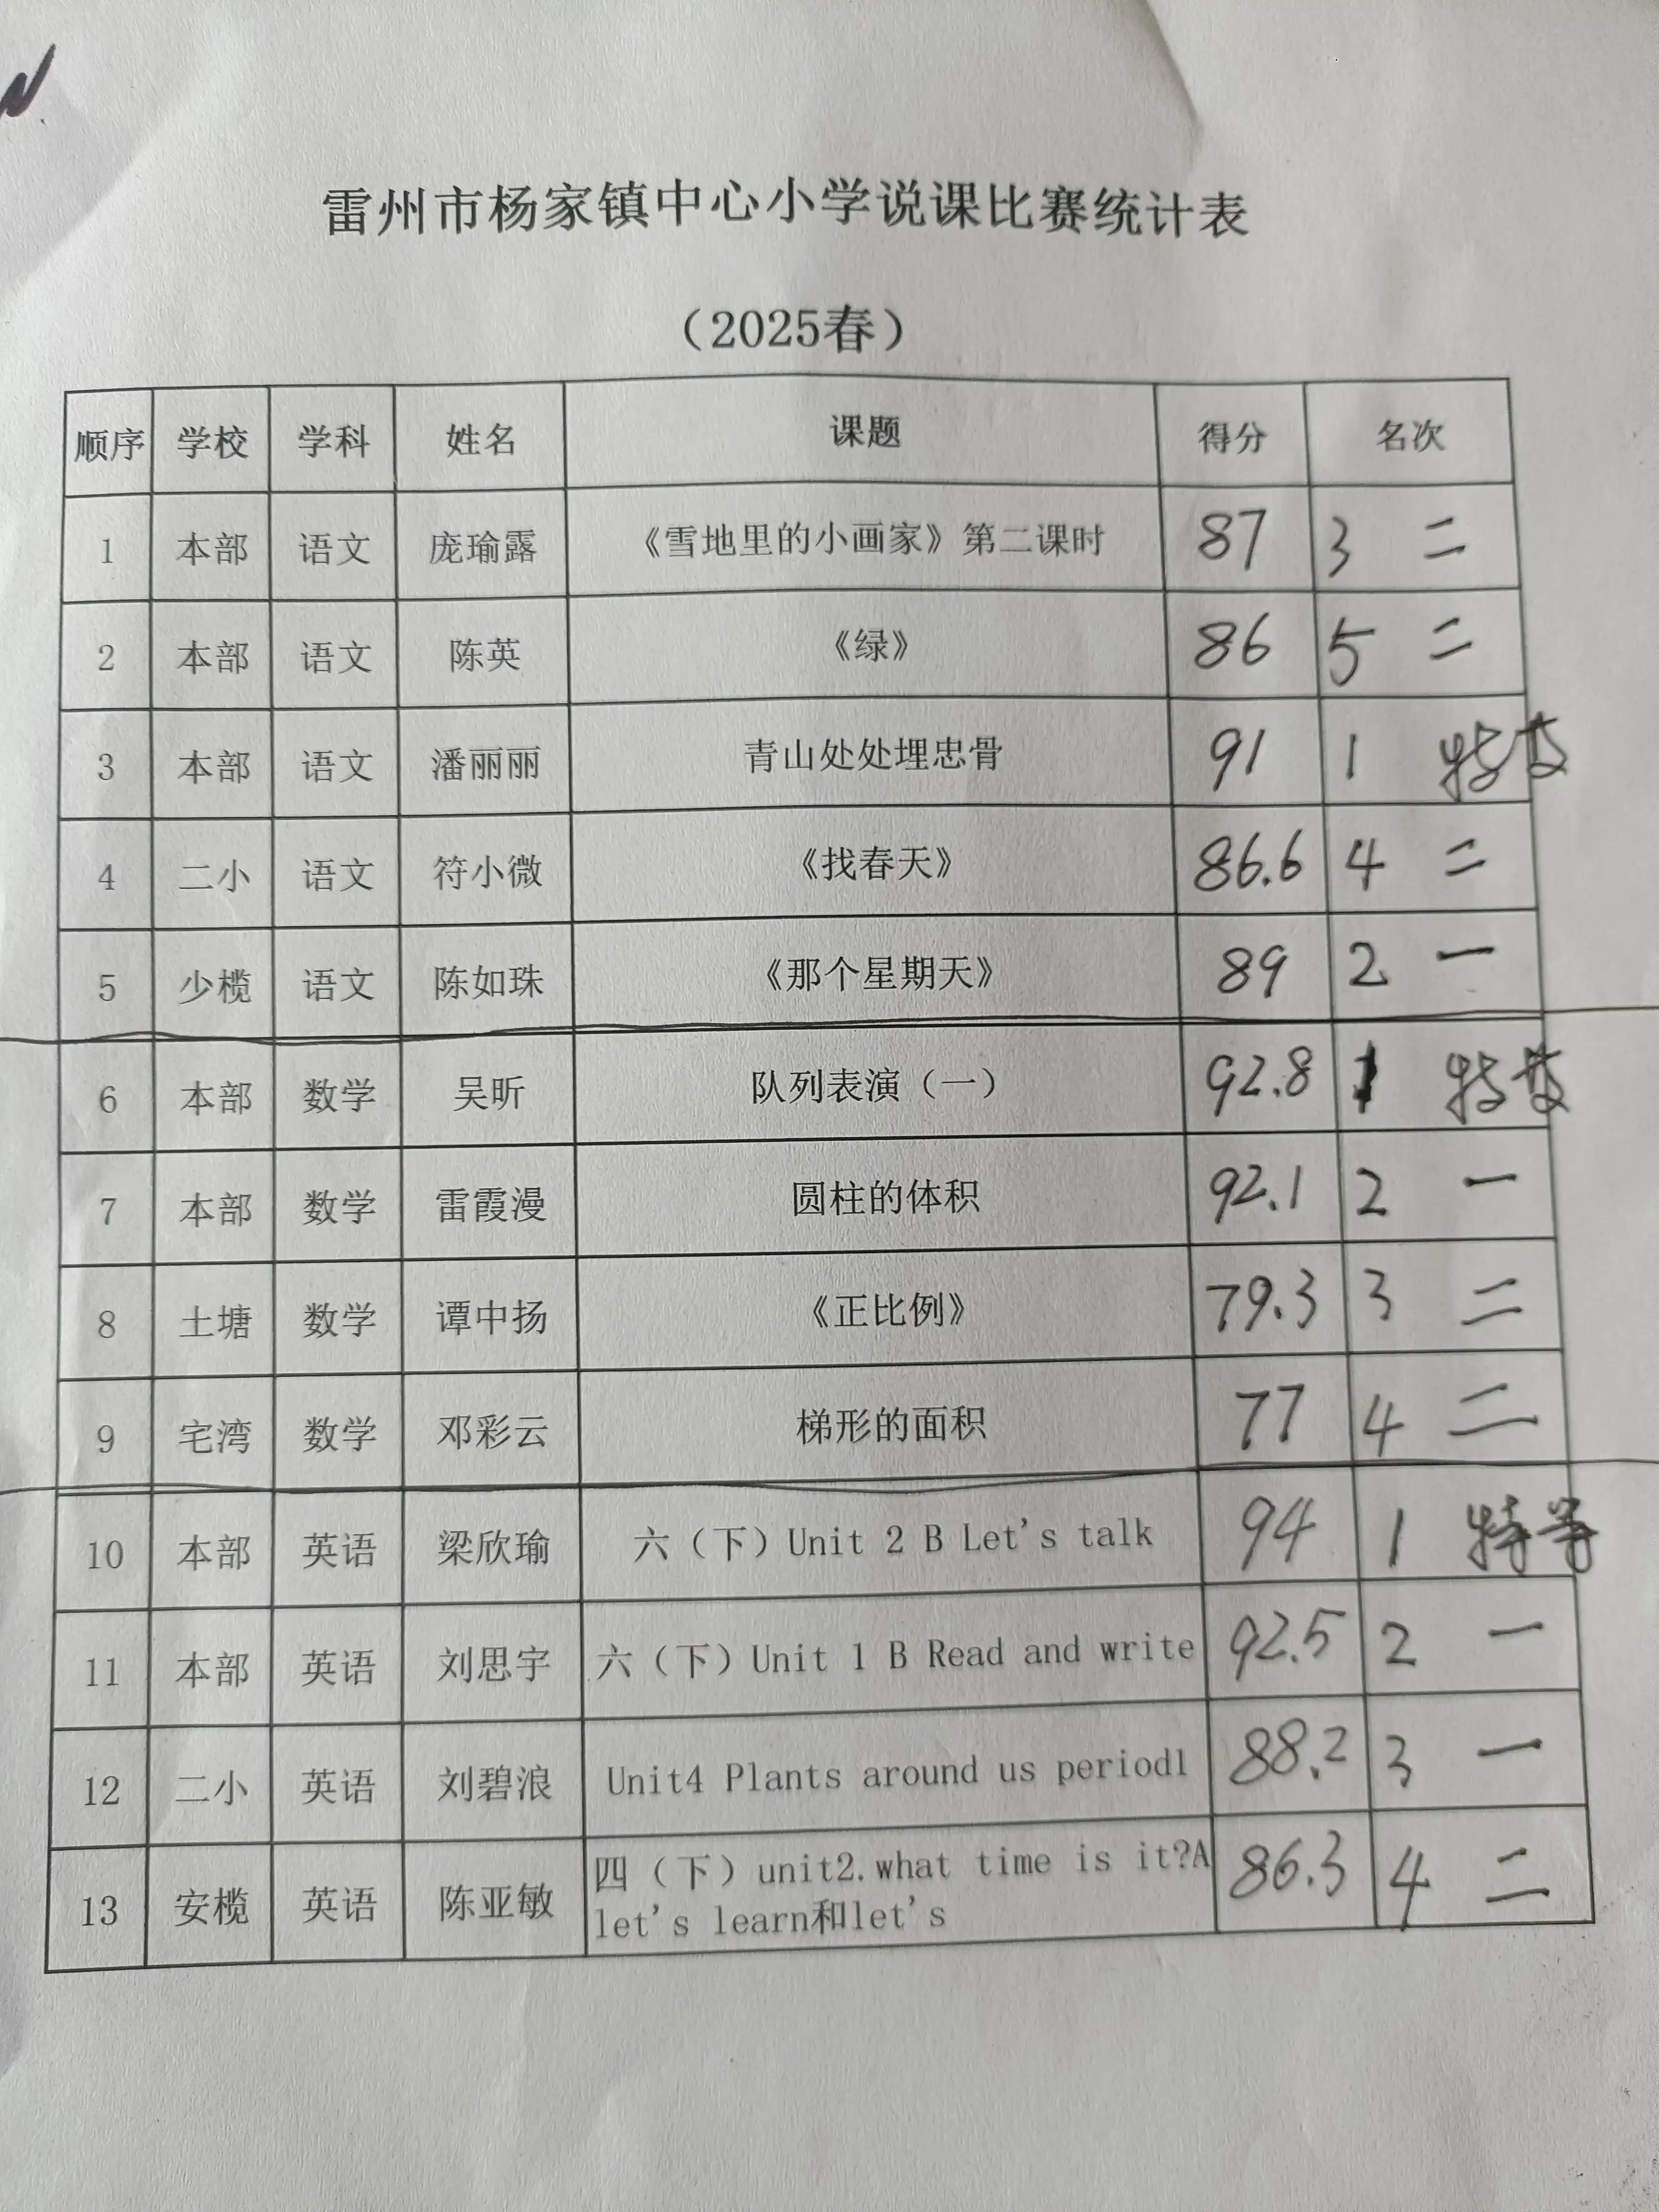 雷州市杨家镇中心小学说课比赛统计表
（2025春）
顺序 学校 学科 姓名 课题 得分 名次
1 本部 语文 庞瑜露 《雪地里的小画家》第二课时 87 3 二
2 本部 语文 陈英 《绿》 86 5 二
3 本部 语文 潘丽丽 青山处处埋忠骨 91 1 特等
4 二小 语文 符小微 《找春天》 86.6 4 二
5 少榄 语文 陈如珠 《那个星期天》 89 2 一
6 本部 数学 吴昕 队列表演（一） 92.8 1 特等
7 本部 数学 雷霞漫 圆柱的体积 92.1 2 一
8 土塘 数学 谭中扬 《正比例》 79.3 3 二
9 宅湾 数学 邓彩云 梯形的面积 77 4 二
10 本部 英语 梁欣瑜 六（下）Unit 2 B Let's talk 94 1 特等
11 本部 英语 刘思宇 六（下）Unit 1 B Read and write 92.5 2 一
12 二小 英语 刘碧浪 Unit4 Plants around us period1 88.2 3 一
13 安榄 英语 陈亚敏 四（下）unit2.what time is it?A 86.3 4 二
let's learn和let's